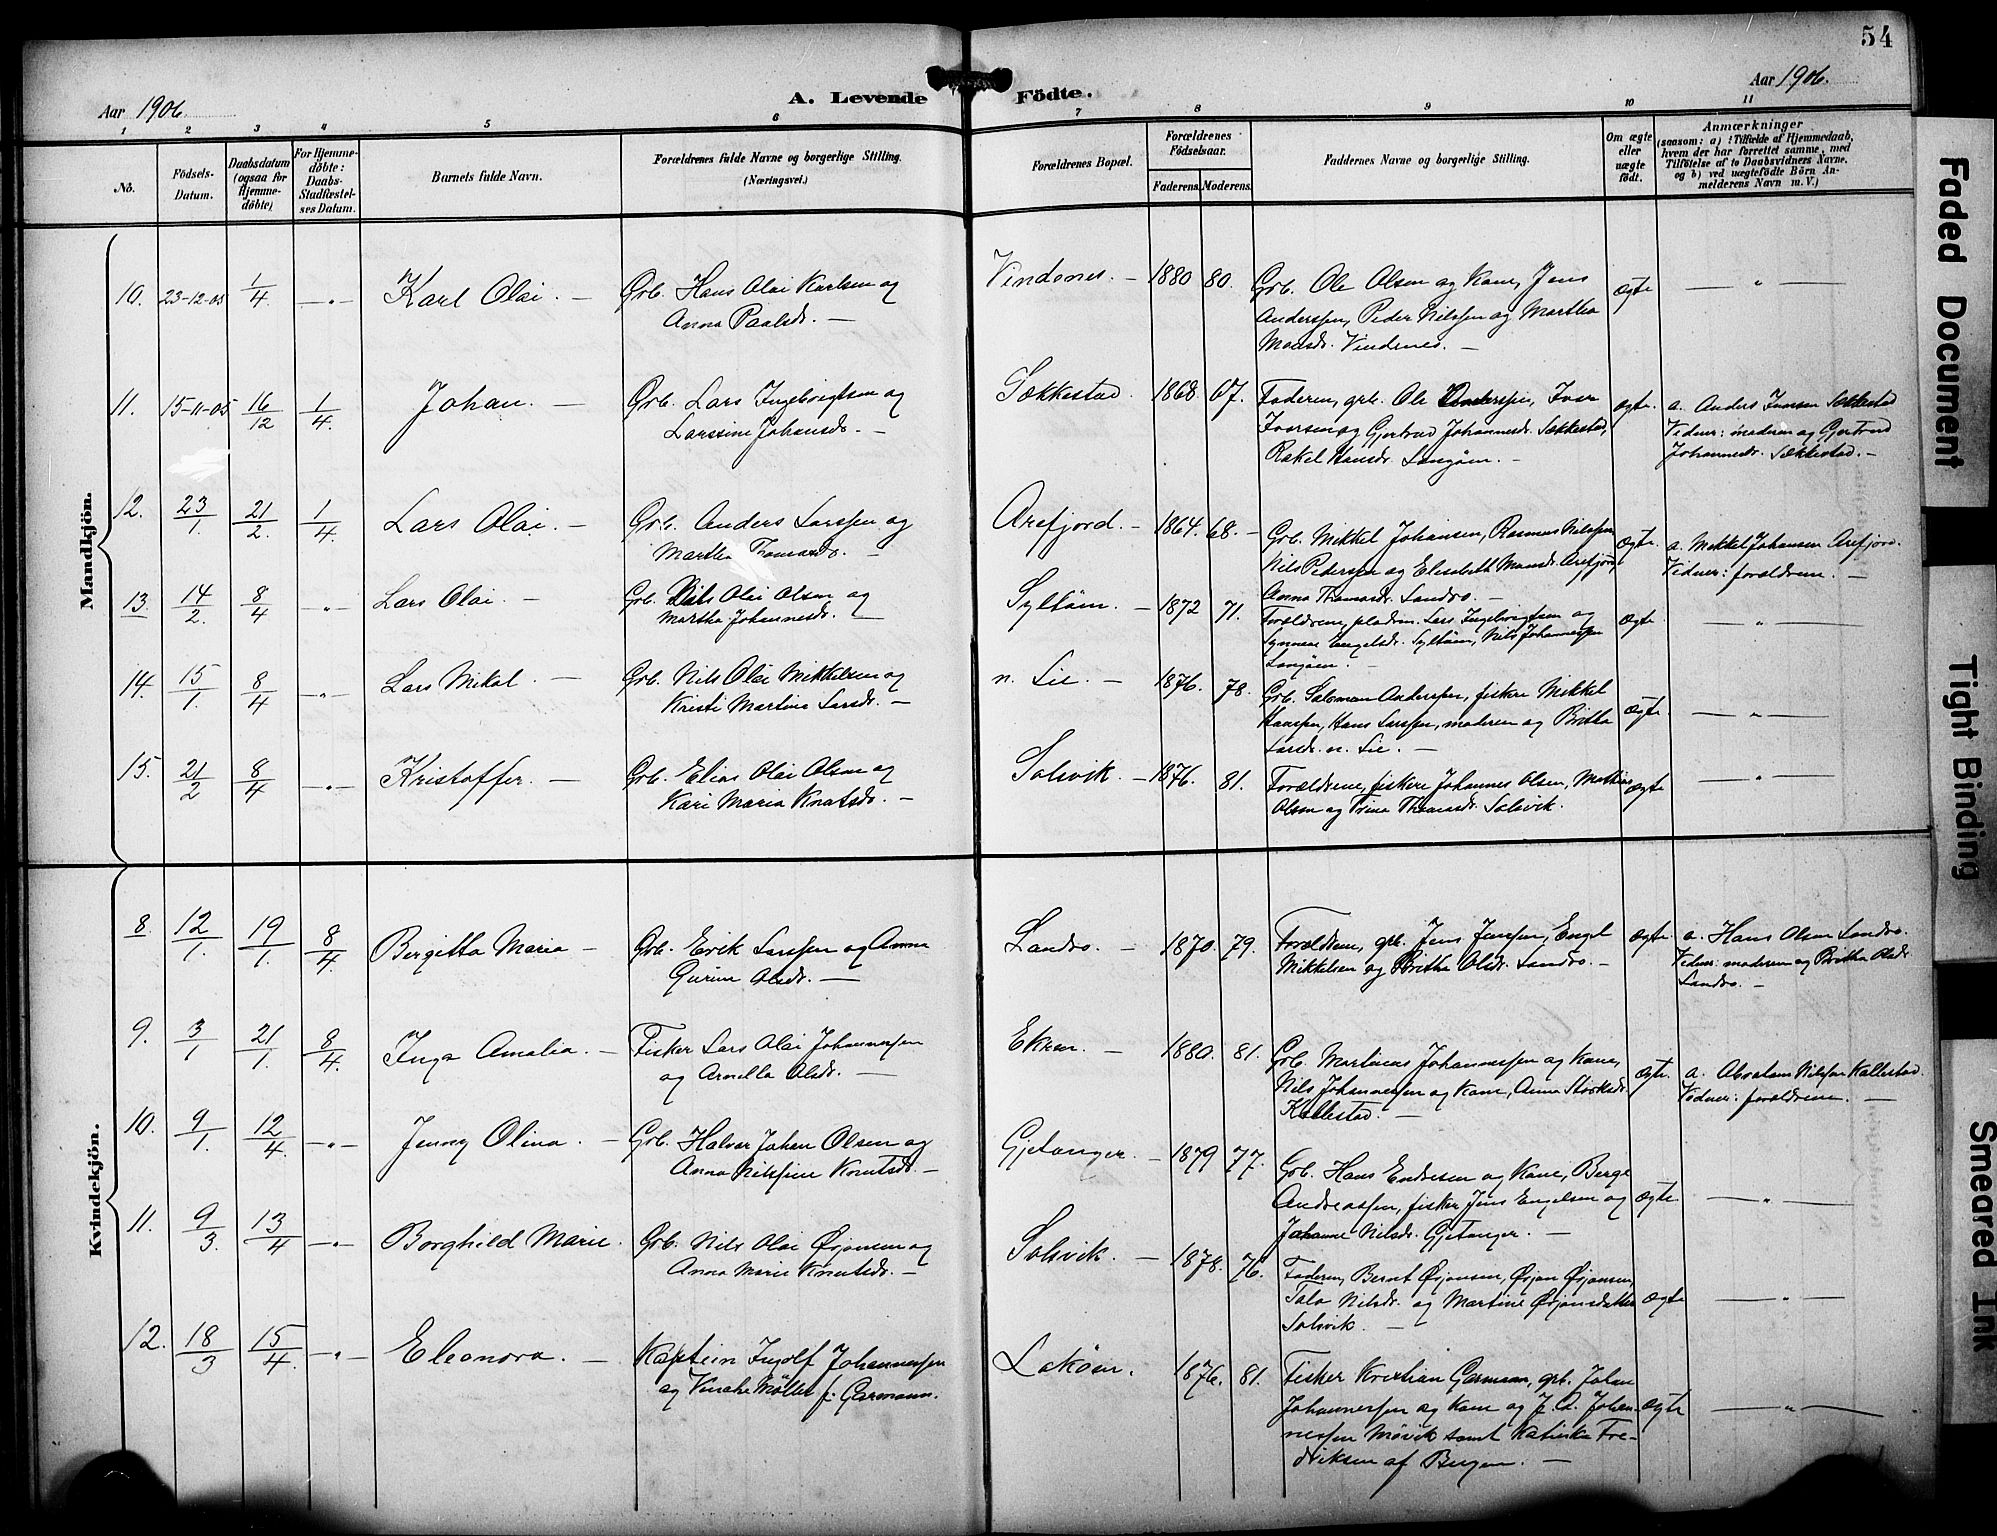 54
Aar 1906.
A. Levende Födte.
Aar 1906.
1 2 3 4 5 6 7 8 9 10 11
No.
Födsels-
Datum.
Daabsdatum
(ogsaa for
Hjemme-
döbte)
For Hjemme-
döbte:
Daabs-
Stadfæstel-
ses Datum.
Barnets fulde Navn.
Forældrenes fulde Navne og borgerlige Stilling.
(Næringsvei.)
Forældrenes Bopæl.
Forældrenes
Födselsaar.
Faderens. Moderens.
Faddernes Navne og borgerlige Stilling.
Om ægte
eller
uægte
födt.
Anmærkninger
(saasom: a) i Tilfælde af Hjemmedaab,
hvem der har forrettet samme, med
Tilföielse af to Daabsvidners Navne.
og b) ved uægtefödte Börn An-
melderens Navn m. V.)
Mandkjön.
10. 23-12-05 1/4 —"— Karl Olai. — Grb. Hans Olai Karlsen og
Anna Paalsdr. —
Vindenes. — 1880 80. Grb. Ole Olsen og Kone, Jens
Anderssen, Peder Nilssen og Martha
Monsdr. Vindenes. —
ægte — " —
11. 15-11-05 16/12 1/4 Johan. — Grb. Lars Ingebrigtsen og
Larssine Johansdr. —
Sækkestad. 1868 67. Faderen, grb. Ole Anderssen, Ivar
Iversen og Gjertrud Johannesdr. Sækkestad,
Rakel Hansdr. Langöen. —
ægte. a. Anders Iversen Sækkestad
Vidner: moderen og Gjertrud
Johannesdr. Sækkestad. —
12. 23/1. 21/2. 1/4. Lars Olai. — Grb. Anders Larssen og
Martha Thomasdr. —
Arefjord. — 1864. 68. — Grb. Mikkel Johansen, Rasmus Nilssen,
Nils Pederssen og Elisabeth Monsdr. Arefjord,
Anna Thomasdr. Landro. —
ægte. a. Mikkel Johansen Arefjord.
Vidner: forældrene. —
13. 14/2. 8/4 —"— Lars Olai. — Grb. Nils Olai Olsen og
Martha Johannesdr. —
Syltöen. — 1872 71. Forældrene, pladsm. Lars Ingebrigtsen og
Synneve Engelsdr. Syltöen, Nils Johannessen
Langöen. —
ægte. — " —
14. 15/1. 8/4 —"— Lars Mikal. — Grb. Nils Olai Mikkelsen og
Kristi Martine Larsdr. —
n. Lie. — 1876. 78. Grb. Salomon Anderssen, fisker Mikkel
Hanssen, Hans Larssen, moderen og Britha
Larsdr. n. Lie. —
ægte. — " —
15. 21/2 8/4 —"— Kristoffer. — Grb. Elias Olai Olsen og
Kari Maria Knutsdr. —
Solsvik. — 1876. 81. Forældrene, fiskere Johannes Olsen, Mathias
Olsen og Trina Thomasdr. Solsvik.
ægte — " —
Kvindekjön.
8 12/1. 19/1. 8/4. Birgitta Maria — Grb. Erik Larssen og Anna
Gurine Olsdr. —
Landro. — 1870. 79. Forældrene, grb. Jens Jenssen, Engel
Mikkelsen og Britha Olsdr. Landro. —
ægte. a. Hans Olsen Landro.
Vidner: moderen og Britha Olsdr.
Landro. —
9. 3/1 21/1. 8/4. Inga Amalia. — Fisker Lars Olai Johannessen
og Arnilla Olsdr. —
Ekren. — 1880. 81. Grb. Martinus Johannessen og Kone,
Nils Johannessen og Kone, Anna Størksdr.
Kallestad. —
ægte. a. Abraham Nilssen Kallestad.
Vidner: forældrene. —
10. 9/1. 12/4. —"— Jenny Olina. — Grb. Halvor Johan Olsen og
Anna Nilssine Knutsdr. —
Gjetanger. — 1879 77. Grb. Hans Endresen og Kone, Berge
Andreassen, fisker Jens Engelsen og
Johanne Nilsdr. Gjetanger. —
ægte. — " —
11. 9/3. 13/4 —"— Borghild Marie. Grb. Nils Olai Ørjansen og
Anna Marie Knutsdr. —
Solsvik. — 1878. 76. Faderen, Bernt Ørjansen, Ørjan Ørjansen,
Talo Nilsdr. og Martine Ørjansdatter
Solsvik. —
ægte — " —
12. 18/3 15/4. —"— Eleonora. — Kaptein Ingolf Johannessen
og Vincke Möller f. Garmann.
Lokøen. 1876. 81. Fisker Kristian Garmann, grb. Johan
Johannessen og Kone og J. A. Johan-
nessen Møvik samt Katinka Fre-
driksen af Bergen. —
ægte — " —
Faded Document
Tight Binding
Smeared Ink